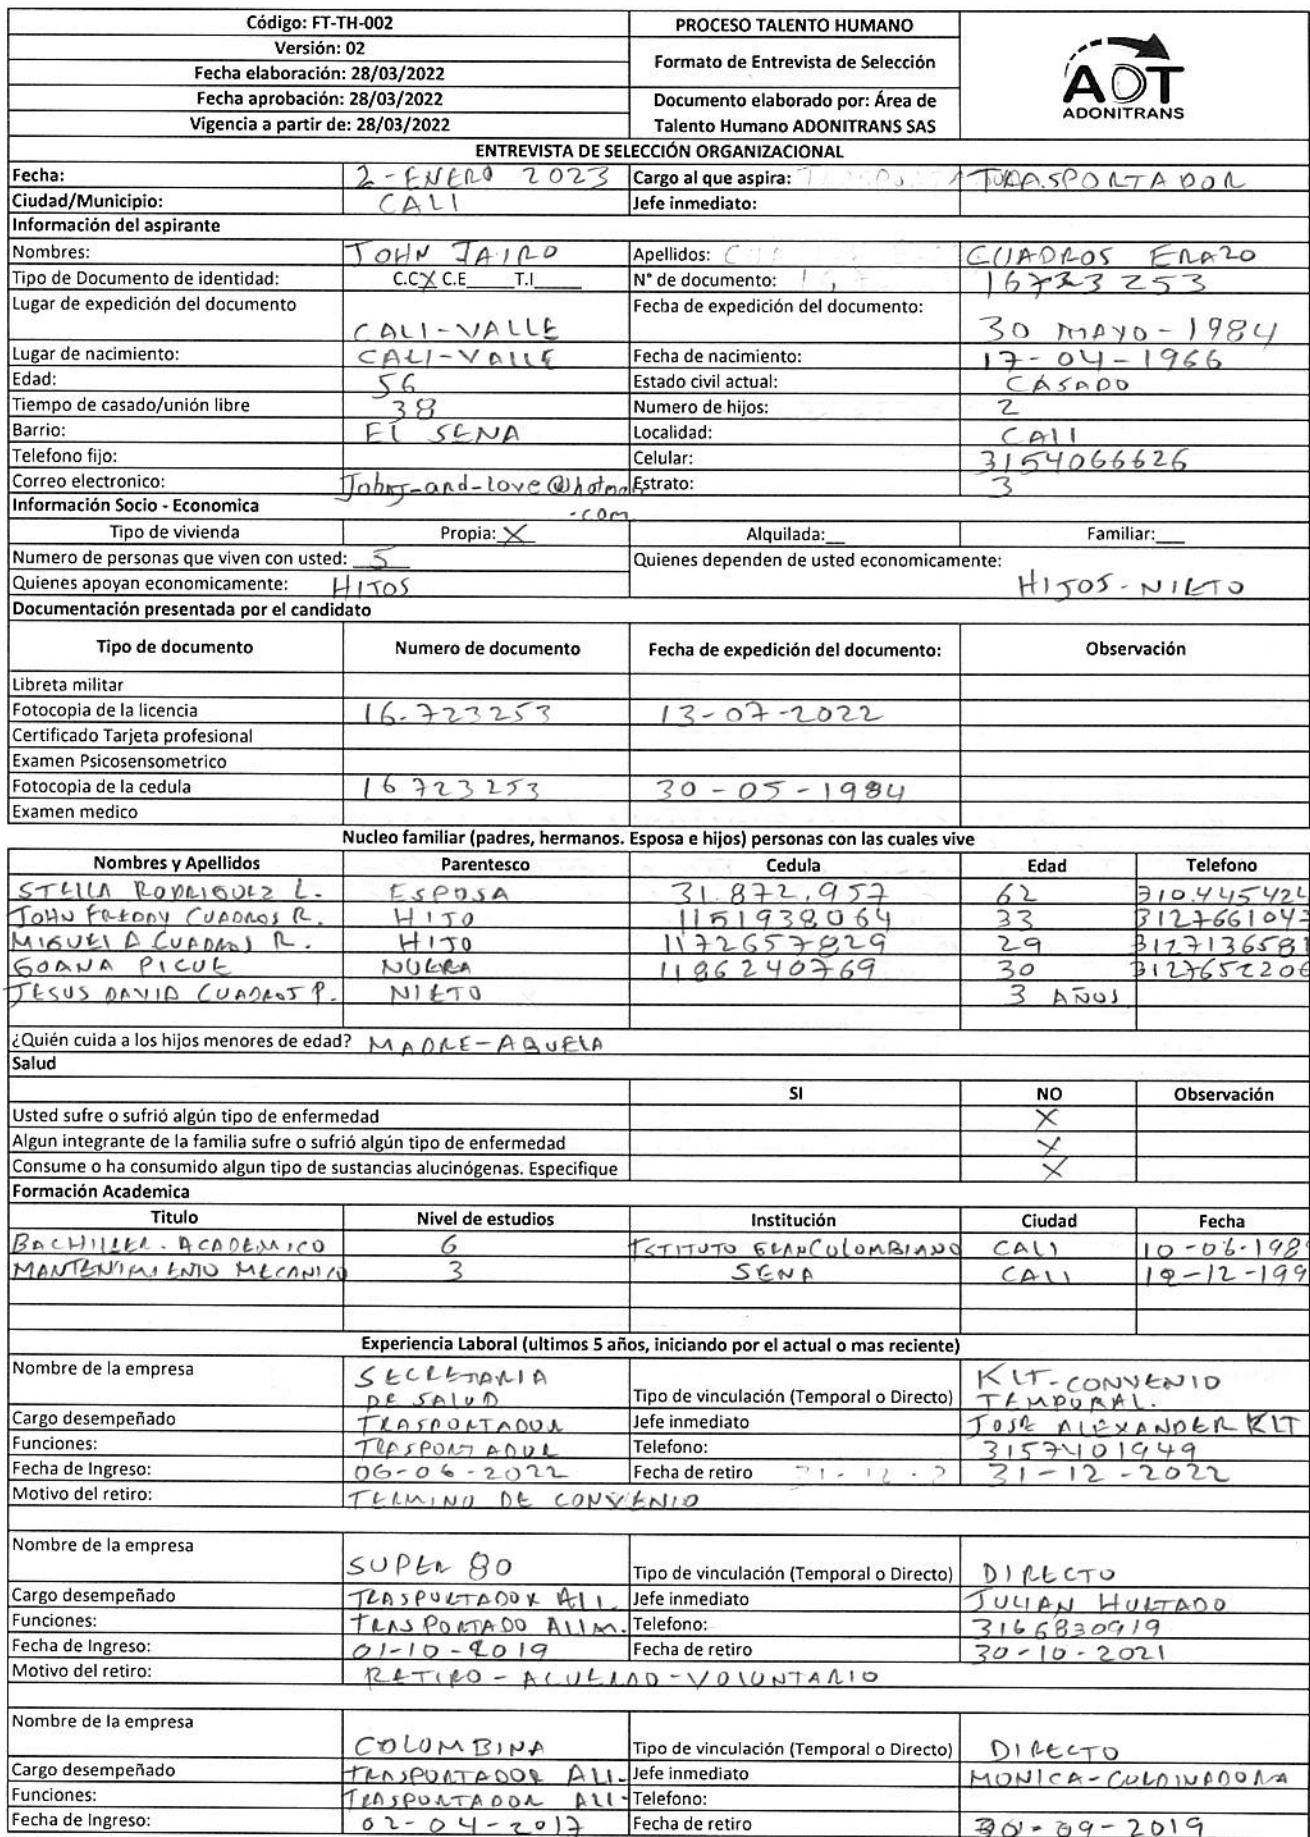 Código: FT-TH-002
Versión: 02
Fecha elaboración: 28/03/2022
Fecha aprobación: 28/03/2022
Vigencia a partir de: 28/03/2022
PROCESO TALENTO HUMANO
Formato de Entrevista de Selección
Documento elaborado por: Área de
Talento Humano ADONITRANS SAS
ADT
ADONITRANS
ENTREVISTA DE SELECCIÓN ORGANIZACIONAL
Fecha: 2-ENERO 2023 Cargo al que aspira: TRASPORTADOR
Ciudad/Municipio: CALI Jefe inmediato:
Información del aspirante
Nombres: JOHN JAIRO Apellidos: CUADROS ERAZO
Tipo de Documento de identidad: C.C X C.E____T.I____ N° de documento: 16723253
Lugar de expedición del documento CALI-VALLE Fecha de expedición del documento: 30 MAYO-1984
Lugar de nacimiento: CALI-VALLE Fecha de nacimiento: 17-04-1966
Edad: 56 Estado civil actual: CASADO
Tiempo de casado/unión libre 38 Numero de hijos: 2
Barrio: El SENA Localidad: CALI
Telefono fijo: Celular: 3154066626
Correo electronico: -and-love@hotmail.com Estrato: 3
Información Socio - Economica
Tipo de vivienda Propia: X Alquilada:__ Familiar:___
Numero de personas que viven con usted: 5 Quienes dependen de usted economicamente: HIJOS-NIETO
Quienes apoyan economicamente: HIJOS
Documentación presentada por el candidato
Tipo de documento Numero de documento Fecha de expedición del documento: Observación
Libreta militar
Fotocopia de la licencia 16.723253 13-07-2022
Certificado Tarjeta profesional
Examen Psicosensometrico
Fotocopia de la cedula 16723253 30-05-1984
Examen medico
Nucleo familiar (padres, hermanos. Esposa e hijos) personas con las cuales vive
Nombres y Apellidos Parentesco Cedula Edad Telefono
STELLA RODRIGUEZ L. ESPOSA 31.872.957 62 310.445424
JOHN FREDDY CUADROS R. HIJO 1151938064 33 312766104
MIGUEL A CUADROS R. HIJO 1172657829 29 312713658
GOANA PICUE NUERA 1186240769 30 312765220
JESUS DAVID CUADROS P. NIETO 3 AÑOS
¿Quién cuida a los hijos menores de edad? MADRE-ABUELA
Salud
SI NO Observación
Usted sufre o sufrió algún tipo de enfermedad X
Algun integrante de la familia sufre o sufrió algún tipo de enfermedad X
Consume o ha consumido algun tipo de sustancias alucinógenas. Especifique X
Formación Academica
Titulo Nivel de estudios Institución Ciudad Fecha
BACHILLER. ACADEMICO 6 CALI 10-06-198
MANTENIMIENTO MECANICO 3 SENA CALI -12-199
Experiencia Laboral (ultimos 5 años, iniciando por el actual o mas reciente)
Nombre de la empresa SECRETARIA DE SALUD Tipo de vinculación (Temporal o Directo) KIT-CONVENIO TEMPORAL.
Cargo desempeñado TRASPORTADOR Jefe inmediato JOSE ALEXANDER KIT
Funciones: TRASPORTADOR Telefono: 3157401949
Fecha de Ingreso: 06-06-2022 Fecha de retiro 31-12-2022
Motivo del retiro: TERMINO DE CONVENIO
Nombre de la empresa SUPER 80 Tipo de vinculación (Temporal o Directo) DIRECTO
Cargo desempeñado TRASPORTADOR ALI. Jefe inmediato JULIAN HURTADO
Funciones: TRASPORTADO ALIM. Telefono: 3166830919
Fecha de Ingreso: 01-10-2019 Fecha de retiro 30-10-2021
Motivo del retiro: RETIRO-ACUERDO-VOLUNTARIO
Nombre de la empresa COLOMBINA Tipo de vinculación (Temporal o Directo) DIRECTO
Cargo desempeñado TRASPORTADOR ALI. Jefe inmediato MONICA-CORDINADORA
Funciones: TRASPORTADOR ALI- Telefono:
Fecha de Ingreso: 02-04-2017 Fecha de retiro 30-09-2019